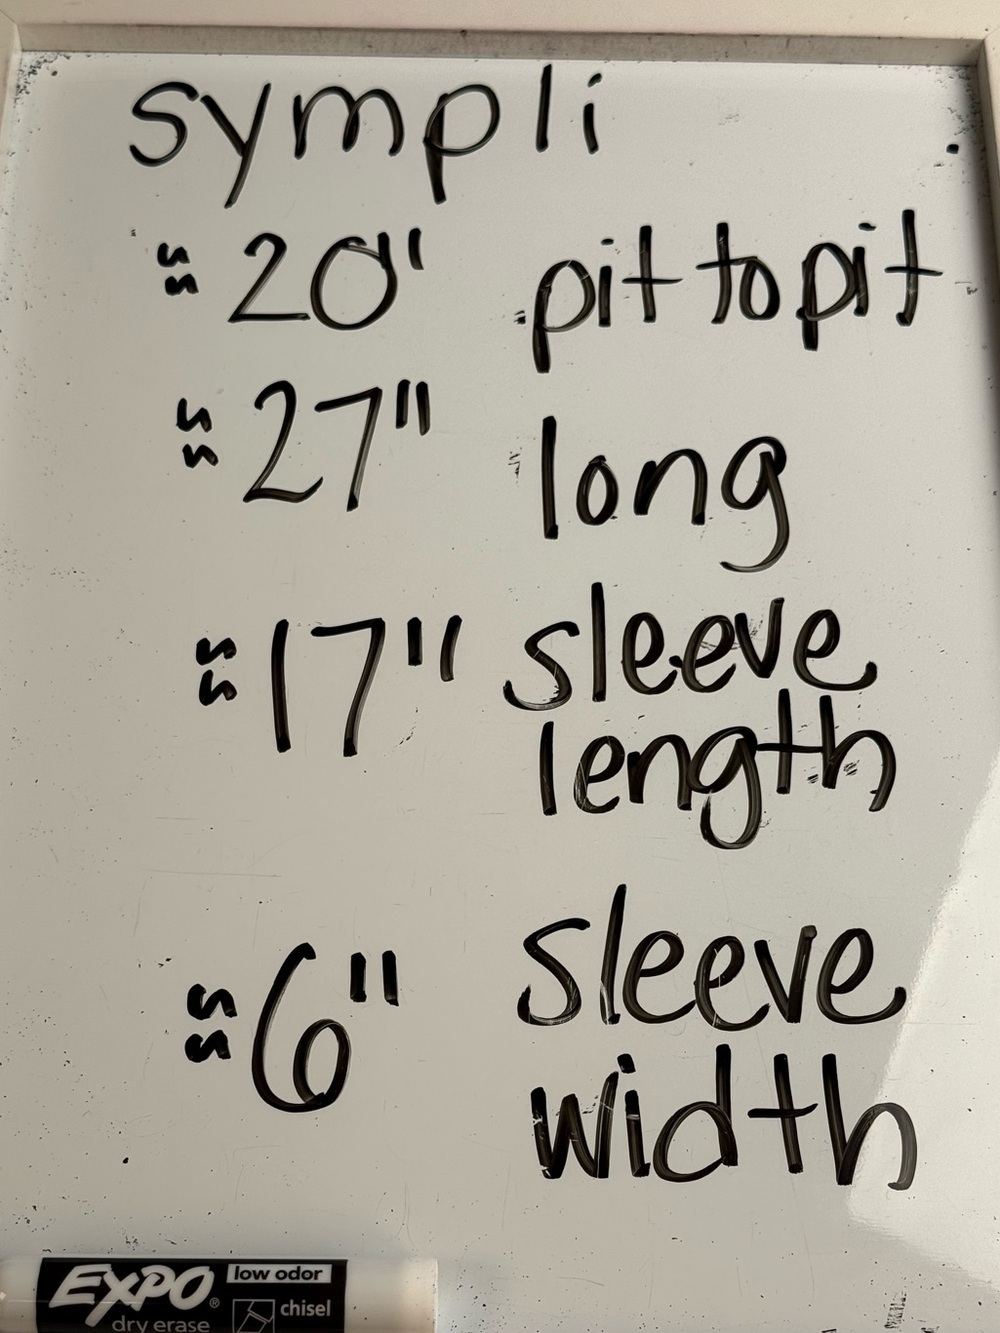 sympli
≈ 20" pit to pit
≈ 27" long
≈ 17" sleeve
length
≈ 6" sleeve
width
EXPO® low odor
chisel
dry erase